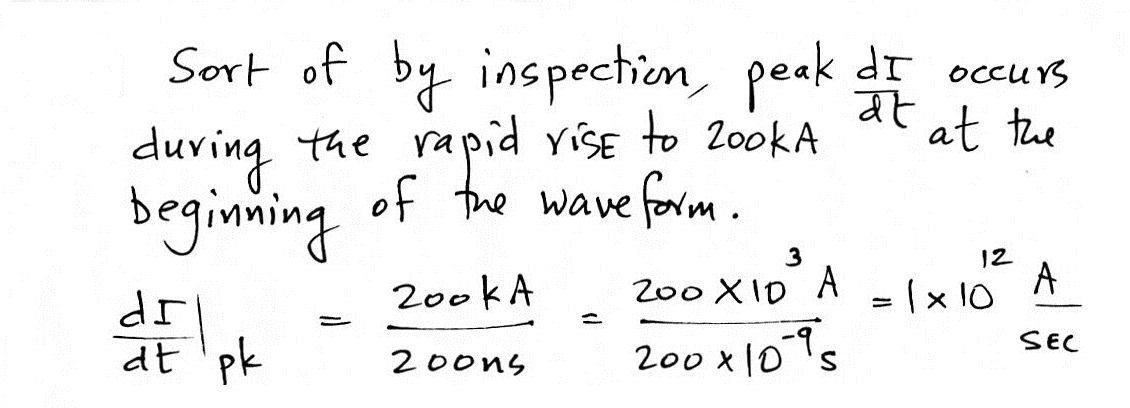 Sort of by inspection, peak dI/dt occurs
during the rapid rise to 200kA at the
beginning of the waveform.
dI/dt|pk = 200kA/200ns = 200 X10³ A/200 x 10⁻⁹s = 1 x 10¹² A/SEC